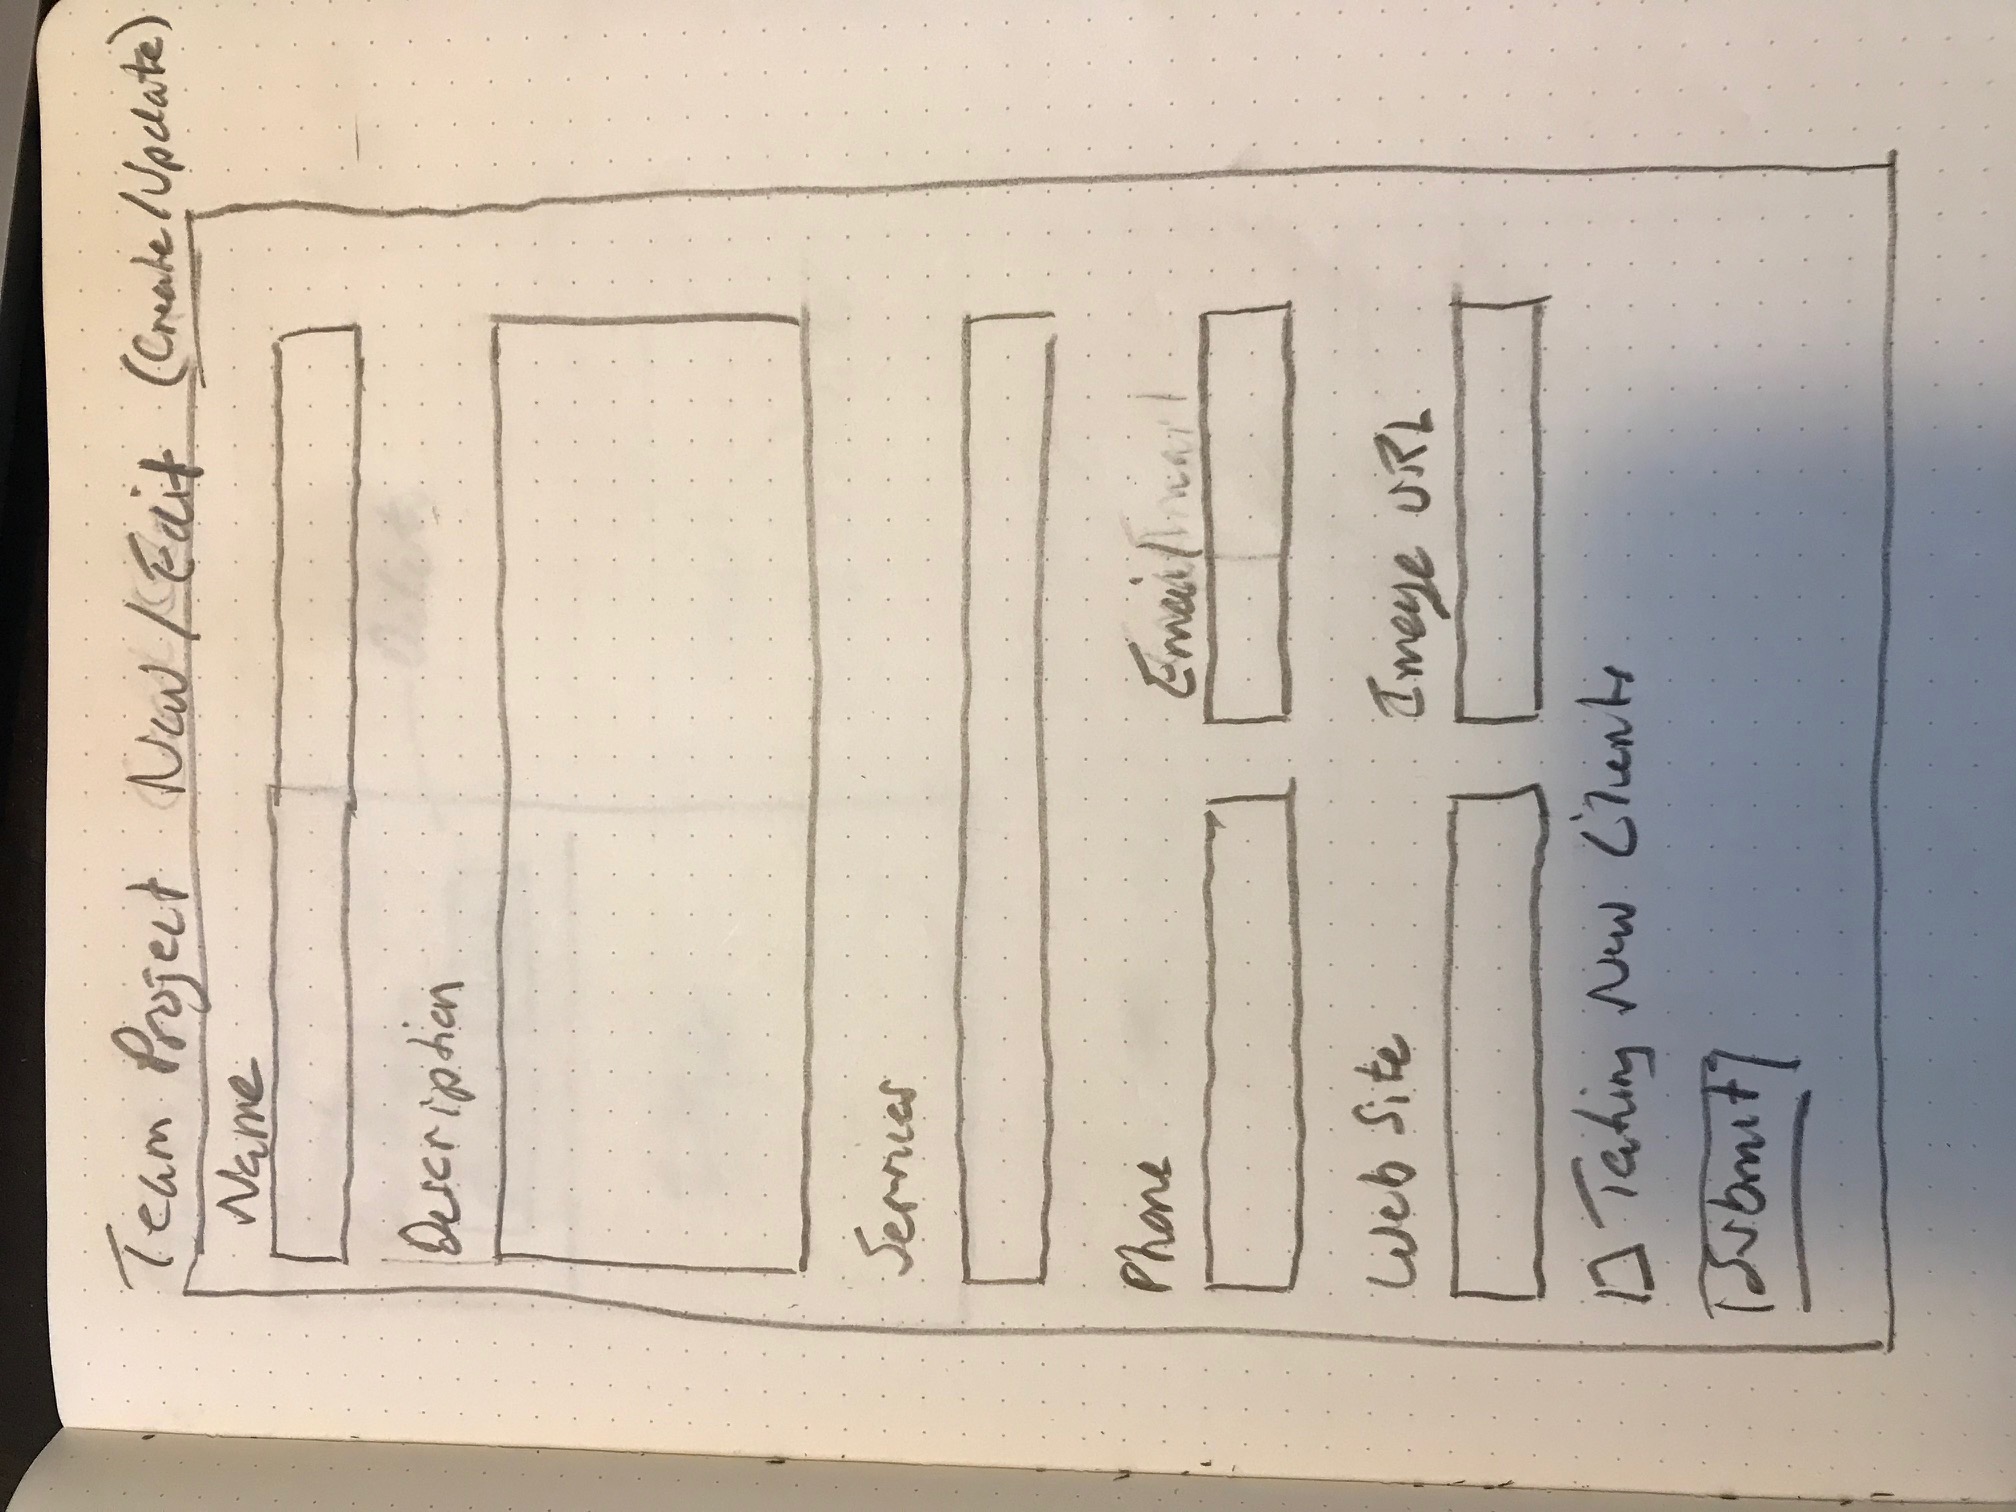 Team Project New / Edit (Create/Update)
Name
Description
Services
Phone Email
Web Site Image URL
Taking New Clients
Submit